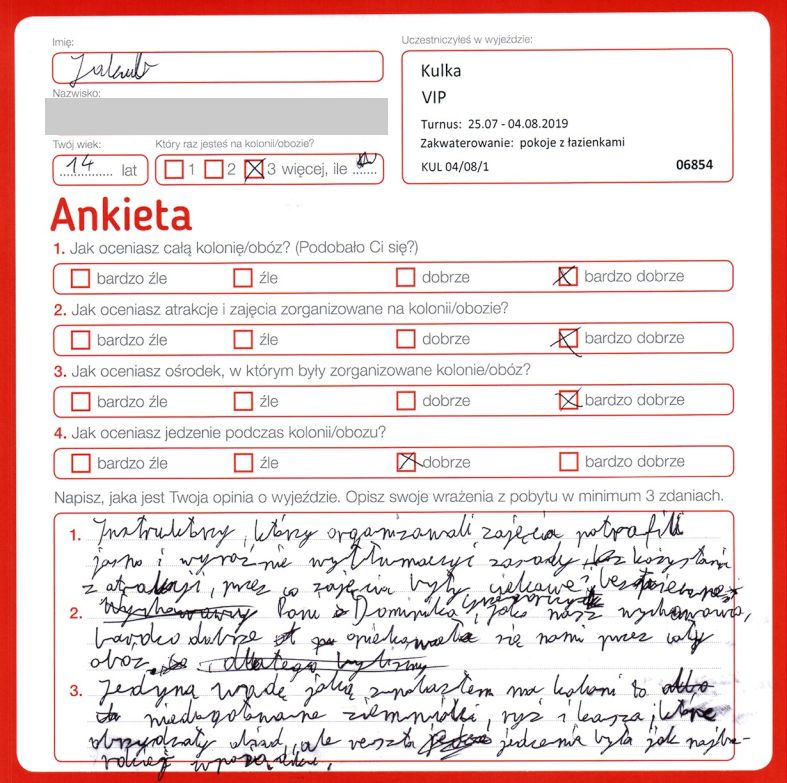 Imię:
Jakub
Uczestniczyłeś w wyjeździe:
Kulka
VIP
Turnus: 25.07 - 04.08.2019
Zakwaterowanie: pokoje z łazienkami
KUL 04/08/1 06854
Nazwisko:
Twój wiek:
14 lat
Który raz jesteś na kolonii/obozie?
1 2 3 więcej, ile ......
Ankieta
1. Jak oceniasz całą kolonię/obóz? (Podobało Ci się?)
bardzo źle źle dobrze bardzo dobrze
2. Jak oceniasz atrakcje i zajęcia zorganizowane na kolonii/obozie?
bardzo źle źle dobrze bardzo dobrze
3. Jak oceniasz ośrodek, w którym były zorganizowane kolonie/obóz?
bardzo źle źle dobrze bardzo dobrze
4. Jak oceniasz jedzenie podczas kolonii/obozu?
bardzo źle źle dobrze bardzo dobrze
Napisz, jaka jest Twoja opinia o wyjeździe. Opisz swoje wrażenia z pobytu w minimum 3 zdaniach.
1. Instruktorzy, którzy organizowali zajęcia potrafili
jasno i wyraźnie wytłumaczyć zasady
z atrakcji, przez co zajęcia były ciekawe i
2. Wychowawcy Pani Dominika, jako nasz wychowawca,
bardzo dobrze opiekowała się nami przez cały
obóz dlatego byliśmy
3. Jedyną wadę jaką znalazłem na koloni to
niedogotowane ziemniaki, ryż i kasza, które
obrzydzały obiad, ale reszta jedzenia była jak najba-
rdziej w porządku.